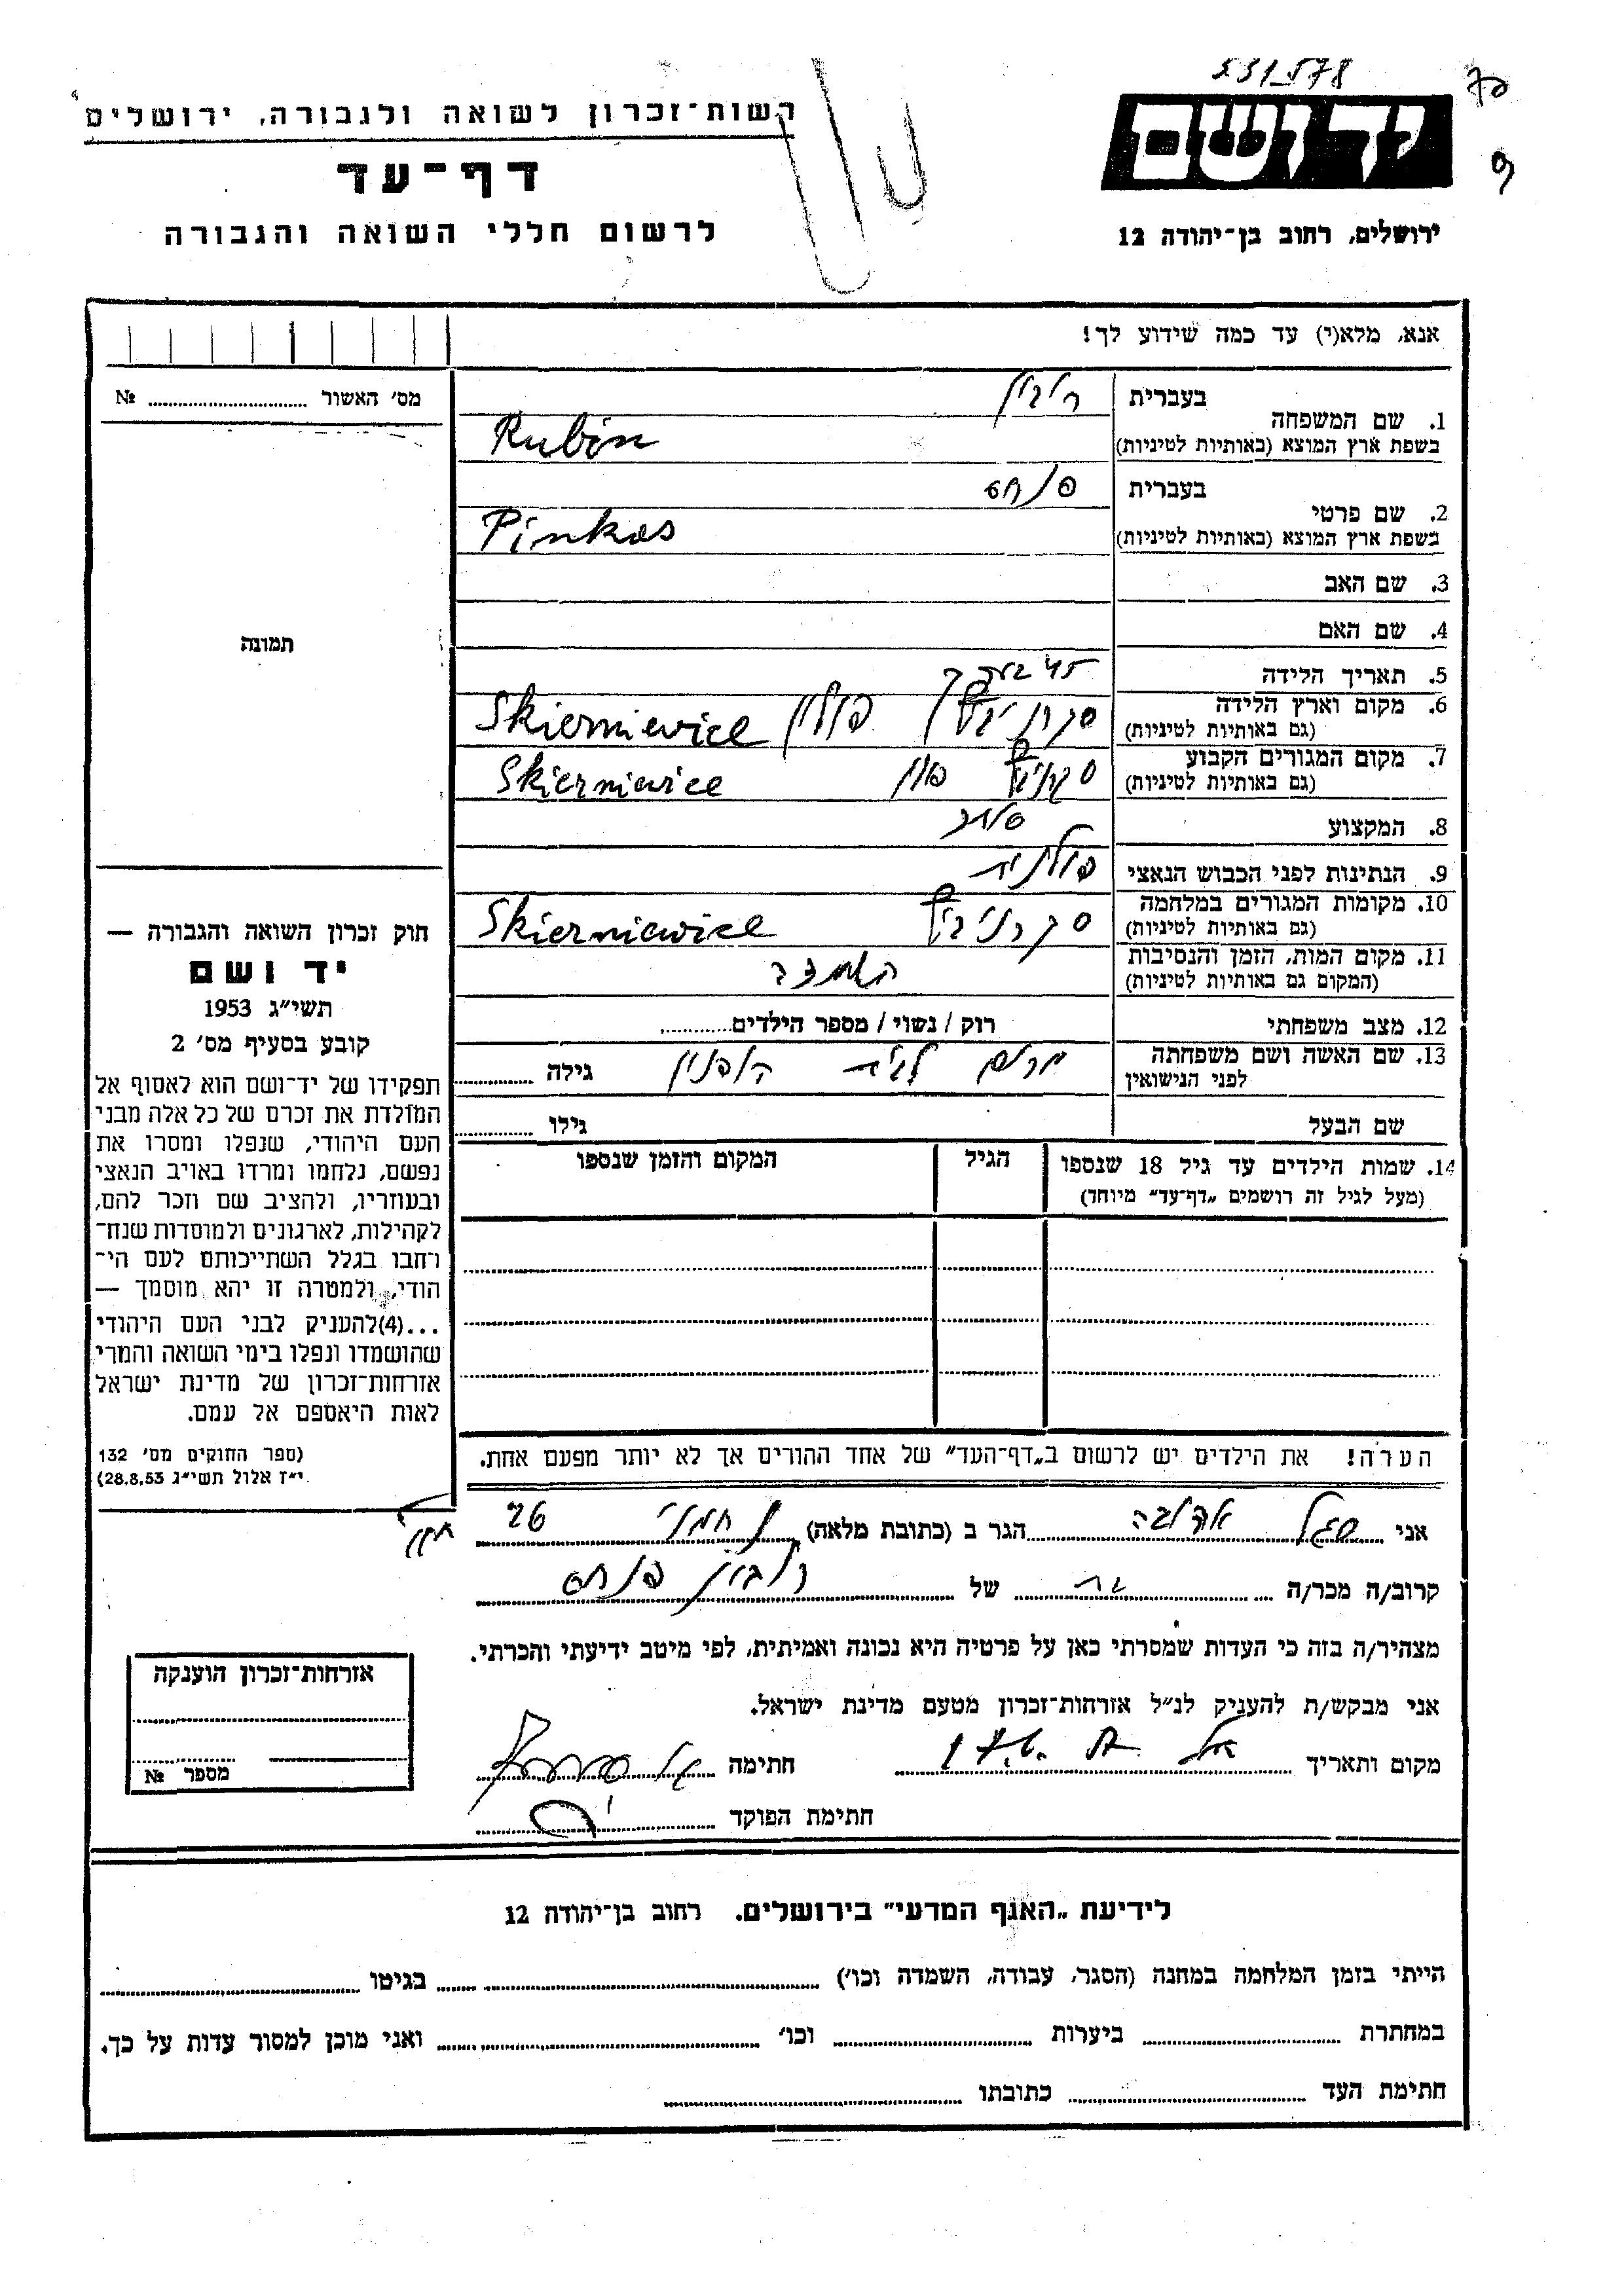 531578
רשות-זכרון לשואה ולגבורה, ירושלים
יד ושם
דף-עד
לרשום חללי השואה והגבורה
ירושלים, רחוב בן-יהודה 12
אנא, מלא(י) עד כמה שידוע לך!
מס' האשור № 
1. שם המשפחה בעברית רובין
בשפת ארץ המוצא (באותיות לטיניות) Rubin
2. שם פרטי בעברית פנחס
בשפת ארץ המוצא (באותיות לטיניות) Pinkas
3. שם האב
4. שם האם
תמונה
5. תאריך הלידה 45
6. מקום וארץ הלידה פולין Skierniewice
(גם באותיות לטיניות)
7. מקום המגורים הקבוע פולין Skierniewice
(גם באותיות לטיניות)
8. המקצוע סוחר
9. הנתינות לפני הכבוש הנאצי פולנית
10. מקומות המגורים במלחמה Skierniewice
(גם באותיות לטיניות)
11. מקום המות, הזמן והנסיבות
(המקום גם באותיות לטיניות)
12. מצב משפחתי רוק / נשוי / מספר הילדים
13. שם האשה ושם משפחתה מרים לבית גילה
לפני הנישואין
שם הבעל גילו
14. שמות הילדים עד גיל 18 שנספו הגיל המקום והזמן שנספו
(מעל לגיל זה רושמים „דף-עד" מיוחד)
חוק זכרון השואה והגבורה —
יד ושם
תשי"ג 1953
קובע בסעיף מס' 2
תפקידו של יד-ושם הוא לאסוף אל
המולדת את זכרם של כל אלה מבני
העם היהודי, שנפלו ומסרו את
נפשם, נלחמו ומרדו באויב הנאצי
ובעוזריו, ולהציב שם וזכר להם,
לקהילות, לארגונים ולמוסדות שנח־
רחבו בגלל השתייכותם לעם הי־
הודי, ולמטרה זו יהא מוסמך —
...(4) להעניק לבני העם היהודי
שהושמדו ונפלו בימי השואה והמרי
אזרחות-זכרון של מדינת ישראל
לאות היאספם אל עמם.
(ספר החוקים מס' 132
י"ז אלול תשי"ג 28.8.53)
הערה! את הילדים יש לרשום ב„דף-העד" של אחד ההורים אך לא יותר מפעם אחת.
אני סגל אהובה הגר ב (כתובת מלאה) נחמני 26
קרוב/ה מכר/ה בת של רובין פנחס
מצהיר/ה בזה כי העדות שמסרתי כאן על פרטיה היא נכונה ואמיתית, לפי מיטב ידיעתי והכרתי.
אני מבקש/ת להעניק לנ"ל אזרחות-זכרון מטעם מדינת ישראל.
מקום ותאריך חתימה
חתימת הפוקד
אזרחות-זכרון הוענקה
מספר №
לידיעת „האגף המדעי" בירושלים. רחוב בן-יהודה 12
הייתי בזמן המלחמה במחנה (הסגר, עבודה, השמדה וכו') בגיטו
במחתרת ביערות וכו' ואני מוכן למסור עדות על כך.
חתימת העד כתובתו